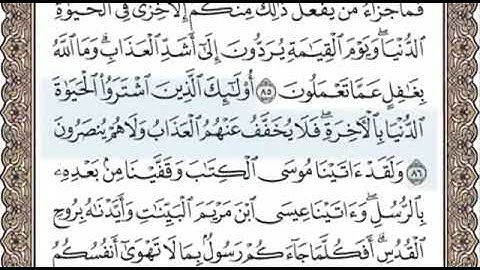 فَمَا جَزَآءُ مَن يَفْعَلُ ذَٰلِكَ مِنكُمْ إِلَّا خِزْىٌ فِى ٱلْحَيَوٰةِ
ٱلدُّنْيَا ۖ وَيَوْمَ ٱلْقِيَـٰمَةِ يُرَدُّونَ إِلَىٰٓ أَشَدِّ ٱلْعَذَابِ ۗ وَمَا ٱللَّهُ
بِغَـٰفِلٍ عَمَّا تَعْمَلُونَ ٨٥ أُو۟لَـٰٓئِكَ ٱلَّذِينَ ٱشْتَرَوُا۟ ٱلْحَيَوٰةَ
ٱلدُّنْيَا بِٱلْـَٔاخِرَةِ ۖ فَلَا يُخَفَّفُ عَنْهُمُ ٱلْعَذَابُ وَلَا هُمْ يُنصَرُونَ
٨٦ وَلَقَدْ ءَاتَيْنَا مُوسَى ٱلْكِتَـٰبَ وَقَفَّيْنَا مِنۢ بَعْدِهِۦ
بِٱلرُّسُلِ ۖ وَءَاتَيْنَا عِيسَى ٱبْنَ مَرْيَمَ ٱلْبَيِّنَـٰتِ وَأَيَّدْنَـٰهُ بِرُوحِ
ٱلْقُدُسِ ۗ أَفَكُلَّمَا جَآءَكُمْ رَسُولٌۢ بِمَا لَا تَهْوَىٰٓ أَنفُسُكُمُ